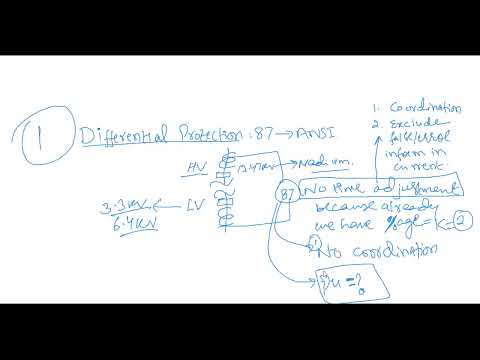 1
Differential Protection : 87 → ANSI
1. Coordination
2. Exclude
false/error
inform in
current.
HV
Medium.
3.3KV
LV
6.4KV
87
No time adjustment
because already
we have %age = K = 2
1) No coordination
2) = ?